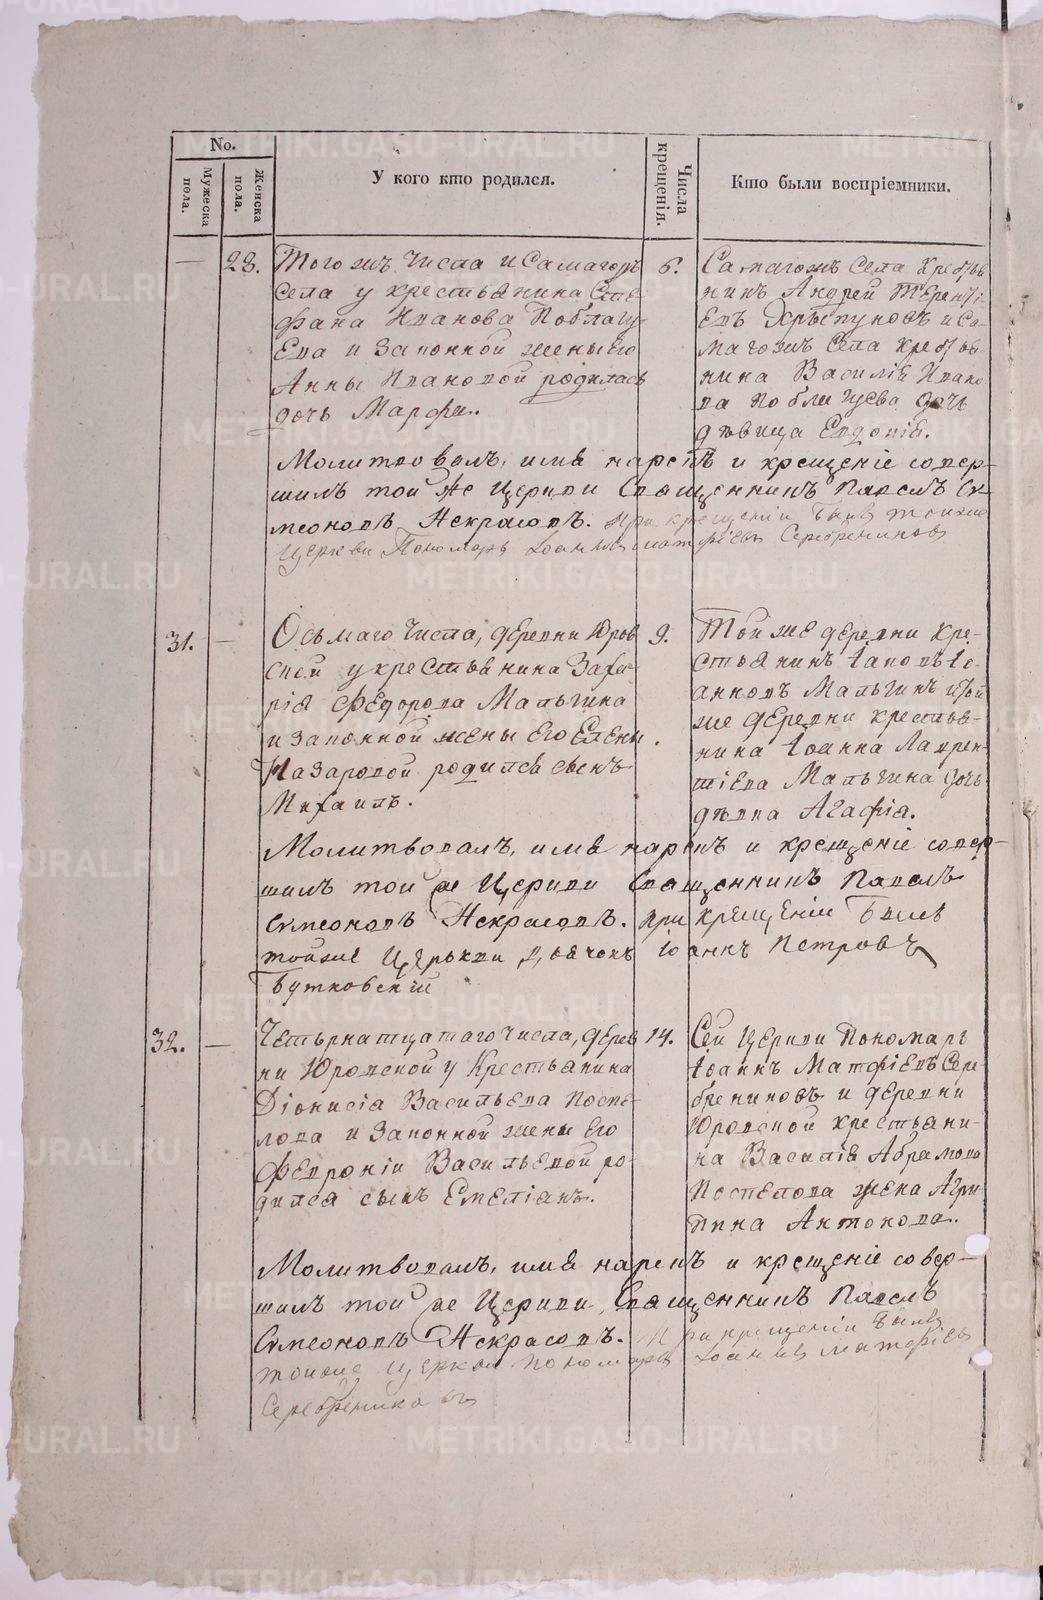 No.
Мужеска пола.
Женска пола.
У кого кто родился.
Числа крещенія.
Кто были воспріемники.
28.
Того жъ числа и самагожъ
села у крестьянина Сте-
фана Иванова Поблагу-
ева и законной жены его
Анны Ивановой родилась
дочь Марфа.
6.
Самагожъ села кресть-
нинъ Андрей Терентi-
евъ Хрыпуновъ и са-
магожъ села крестья-
нина Василія Ивано-
ва Поблагуева дочь
дѣвица Евдокія.
Молитвовалъ, имя нарекъ и крещеніе совер-
шилъ той же Церкви Священникъ Павелъ Си-
меоновъ Некрасовъ. При крещеніи былъ тойже
Церкви Пономарь Іоаннъ Матфіевъ Серебрениковъ
31.
Осьмаго числа, деревни Юров-
ской у крестьянина Заха-
рія Федорова Мальгина
и законной жены его Елены
Назаровой родился сынъ
Михаилъ.
9.
Той же деревни кре-
стьянинъ Іаковъ Іо-
анновъ Мальгинъ и той
же деревни крестья-
нина Іоанна Лаврен-
тіева Мальгина дочь
дѣвка Агафія.
Молитвовалъ, имя нарекъ и крещеніе совер-
шилъ той же Церкви Священникъ Павелъ
Симеоновъ Некрасовъ. При крещеніи былъ
тойже Церькви Дьячокъ Іоаннъ Петровъ
Бутковскій
32.
Четырнатцатаго числа, дерев-
ни Юровской у крестьянина
Діонисія Васильева Поспе-
лова и законной жены его
Февроніи Васильевой ро-
дился сынъ Емеліанъ.
14.
Сей Церкви Пономарь
Іоаннъ Матфіевъ Сере-
брениковъ и деревни
Юровской крестьяни-
на Василія Абрамова
Поспелова жена Агри-
пина Антонова.
Молитвовалъ, имя нарекъ и крещеніе совер-
шилъ той же Церкви Священникъ Павелъ
Симеоновъ Некрасовъ. При крещеніи былъ
тойже Церкви Пономарь Іоаннъ Матфіевъ
Серебрениковъ
METRIKI.GASO-URAL.RU